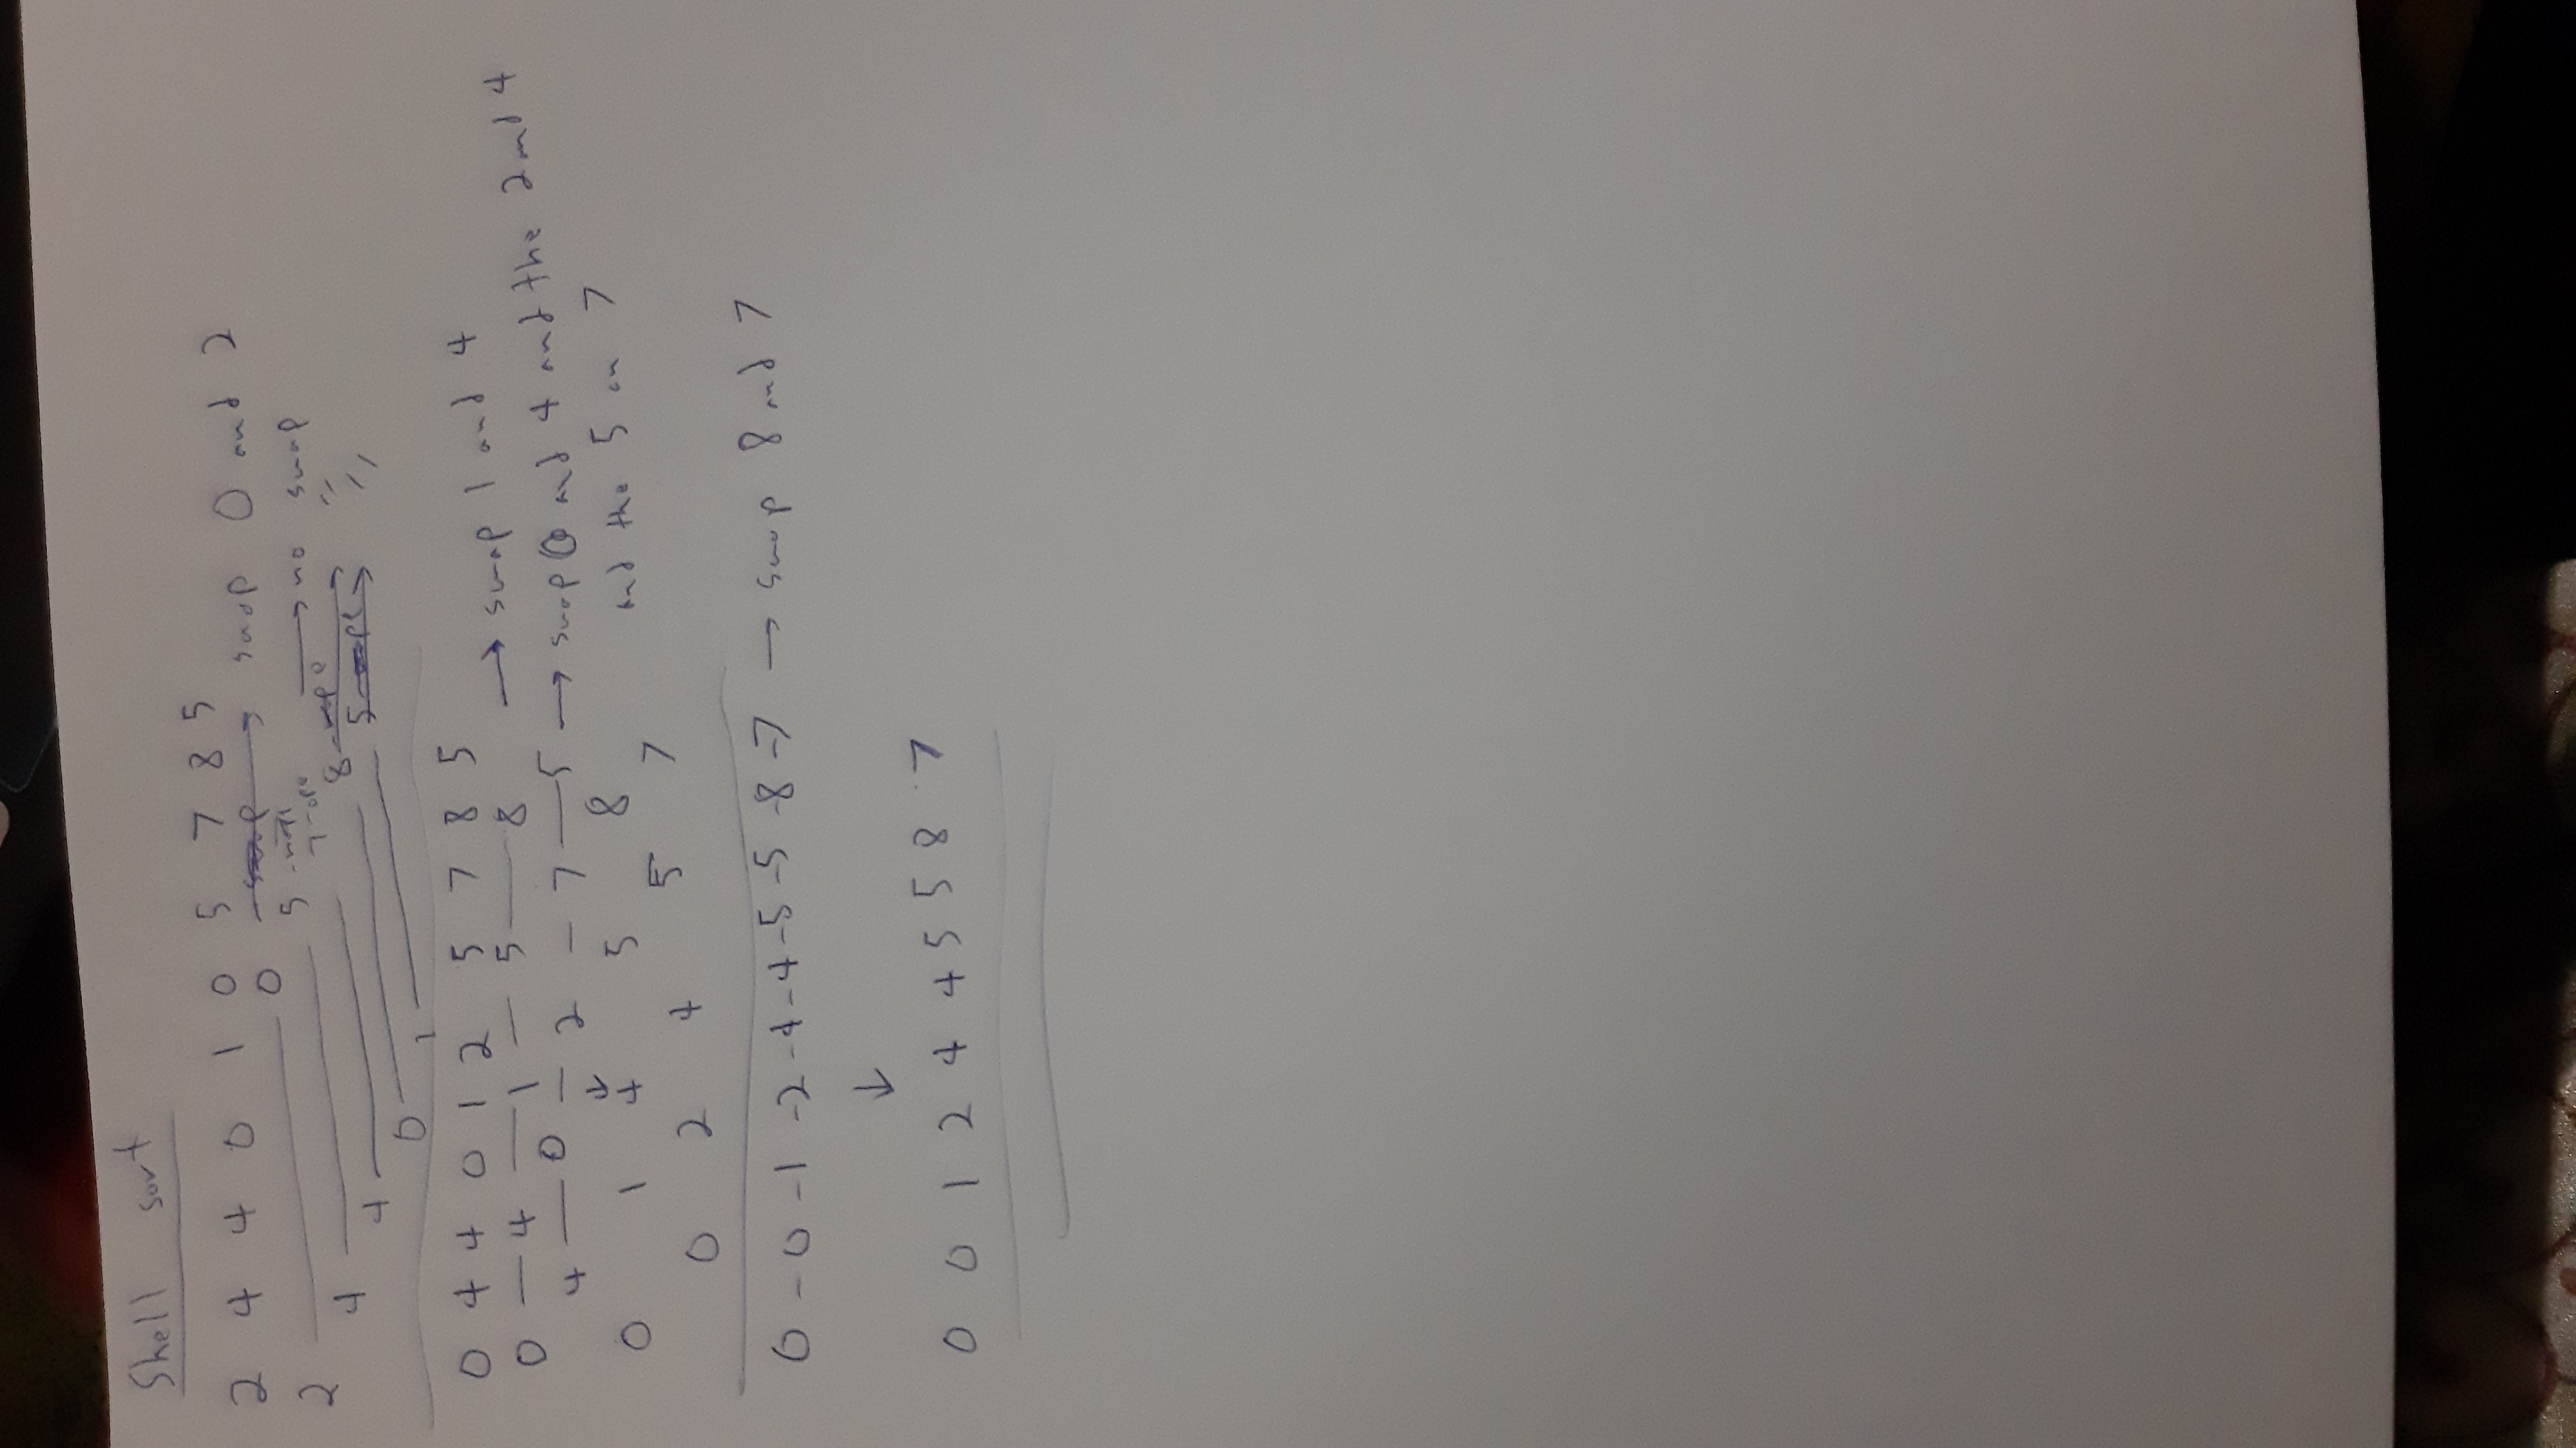 Shell sort
2 4 4 0 1 0 5 7 8 5
2 0 → swap 0 and 2
4 5 → no swap
4
0 8 → "
1 5 → "
0 4 4 0 1 2 5 7 8 5
0 — 4 — 1 — 5 — 8 → swap 1 and 4
4 — 0 — 2 — 7 — 5 → swap 0 and 4 and the 2 and 4
↓
0 1 4 5 8 and the 5 an 7
0 2 4 5 7
0 - 0 - 1 - 2 - 4 - 4 - 5 - 5 - 8 - 7 → swap 8 and 7
↓
0 0 1 2 4 4 5 5 8 7